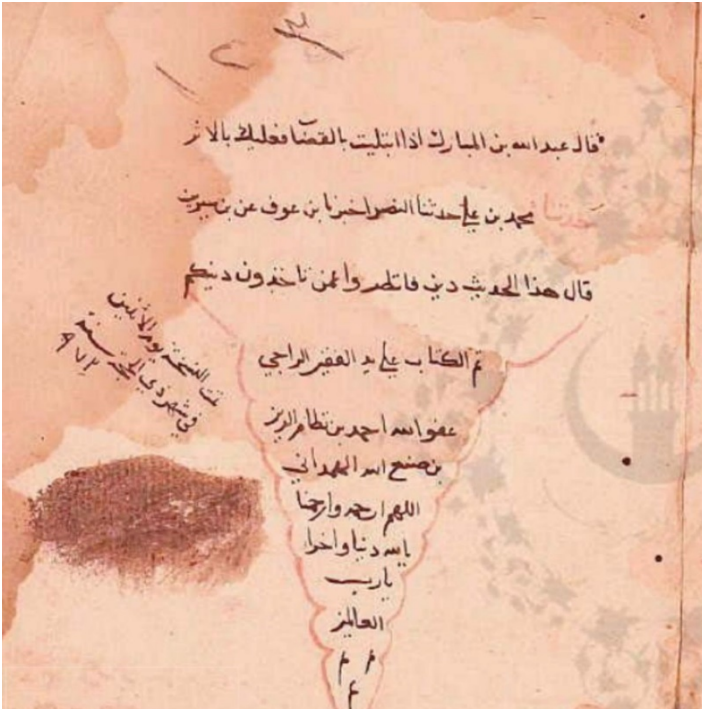 ١٢٣
قال عبد الله بن المبارك اذا ابتليت بالقضا فعليك بالاثر
حدثنا محمد بن علي حدثنا النضر اخبرنا بن عوف عن بن سيرين
قال هذا الحديث دين فانظروا عمن تاخذون دينكم
تم الكتاب علي يد الفقير الراجي
عفو الله احمد بن نظام الدين
بن صنع الله الهمداني
اللهم ارحمه وارحمنا
يا الله دنيا واخرا
يا رب
العالمين
م م
م
تمت النسخة يوم الاثنين
في شهر ذي الحجة سنة
٩٧٢